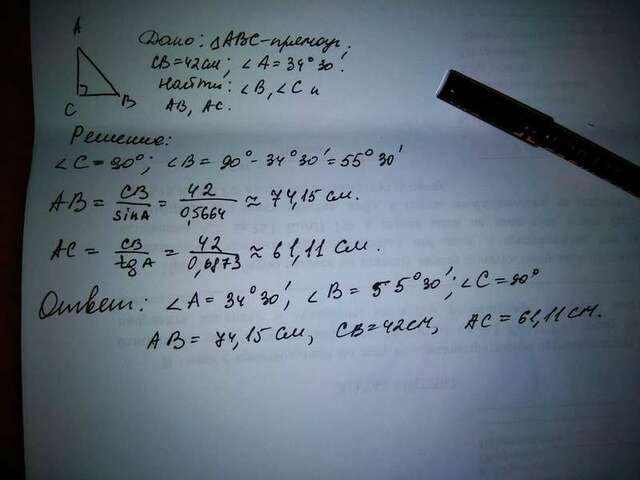 A
C
B
Дано: △ABC-прямоуг;
CB=42см; ∠A=34°30′.
Найти: ∠B, ∠C и
AB, AC.
Решение:
∠C=90°; ∠B=90°-34°30′=55°30′
AB = CB/sinA = 42/0,5664 ≈ 74,15 см.
AC = CB/tgA = 42/0,6873 ≈ 61,11 см.
Ответ: ∠A=34°30′; ∠B=55°30′; ∠C=90°
AB=74,15см, CB=42см, AC=61,11см.